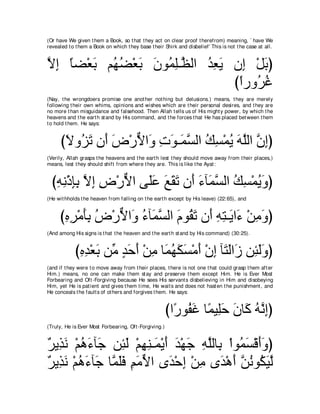 (Or have We given them a Book, so that they act on clear proof therefrom) meaning, ` have We
revealed to them a Book on which they base their Shirk and disbelief' This is not the case at all.
﴿بَلْ إِن يَعِدُ الظَّـلِمُونَ بَعْضُهُم بَعْضاً إِلاَّ
غُرُوراً﴾
(Nay, the wrongdoers promise one another nothing but delusions.) means, they are merely
following their own whims, opinions and wishes which are their personal desires, and they are
no more than misguidance and falsehood. Then Allah tells us of His mighty power, by which the
heavens and the earth stand by His command, and the forces that He has placed between them
to hold them. He says:
﴿إِنَّ اللَّهَ يُمْسِكُ السَّمَـوَتِ وَالاٌّرْضَ أَن تَزُولاَ﴾
(Verily, Allah grasps the heavens and the earth lest they should move away from their places,)
means, lest they should shift from where they are. This is like the Ayat:
﴿وَيُمْسِكُ السَّمَآءَ أَن تَقَعَ عَلَى الاٌّرْضِ إِلاَّ بِإِذْنِهِ﴾
(He withholds the heaven from falling on the earth except by His leave) (22:65), and
﴿وَمِنْ ءَايَـتِهِ أَن تَقُومَ السَّمَآءُ وَالاٌّرْضُ بِأَمْرِهِ﴾
(And among His signs is that the heaven and the earth stand by His command) (30:25).
﴿وَلَئِن زَالَتَآ إِنْ أَمْسَكَهُمَا مِنْ أَحَدٍ مِّن بَعْدِهِ﴾
(and if they were to move away from their places, there is not one that could grasp them after
Him.) means, no one can make them stay and preserve them except Him. He is Ever Most
Forbearing and Oft-forgiving because He sees His servants disbelieving in Him and disobeying
Him, yet He is patient and gives them time, He waits and does not hasten the punishment, and
He conceals the faults of others and forgives them. He says:
﴿إِنَّهُ كَانَ حَلِيماً غَفُوراً﴾
(Truly, He is Ever Most Forbearing, Oft-Forgiving.)
﴿وَأَقْسَمُواْ بِاللَّهِ جَهْدَ أَيْمَـنِهِمْ لَئِن جَآءَهُمْ نَذِيرٌ
لَّيَكُونُنَّ أَهْدَى مِنْ إِحْدَى الاٍّمَمِ فَلَمَّا جَآءَهُمْ نَذِيرٌ